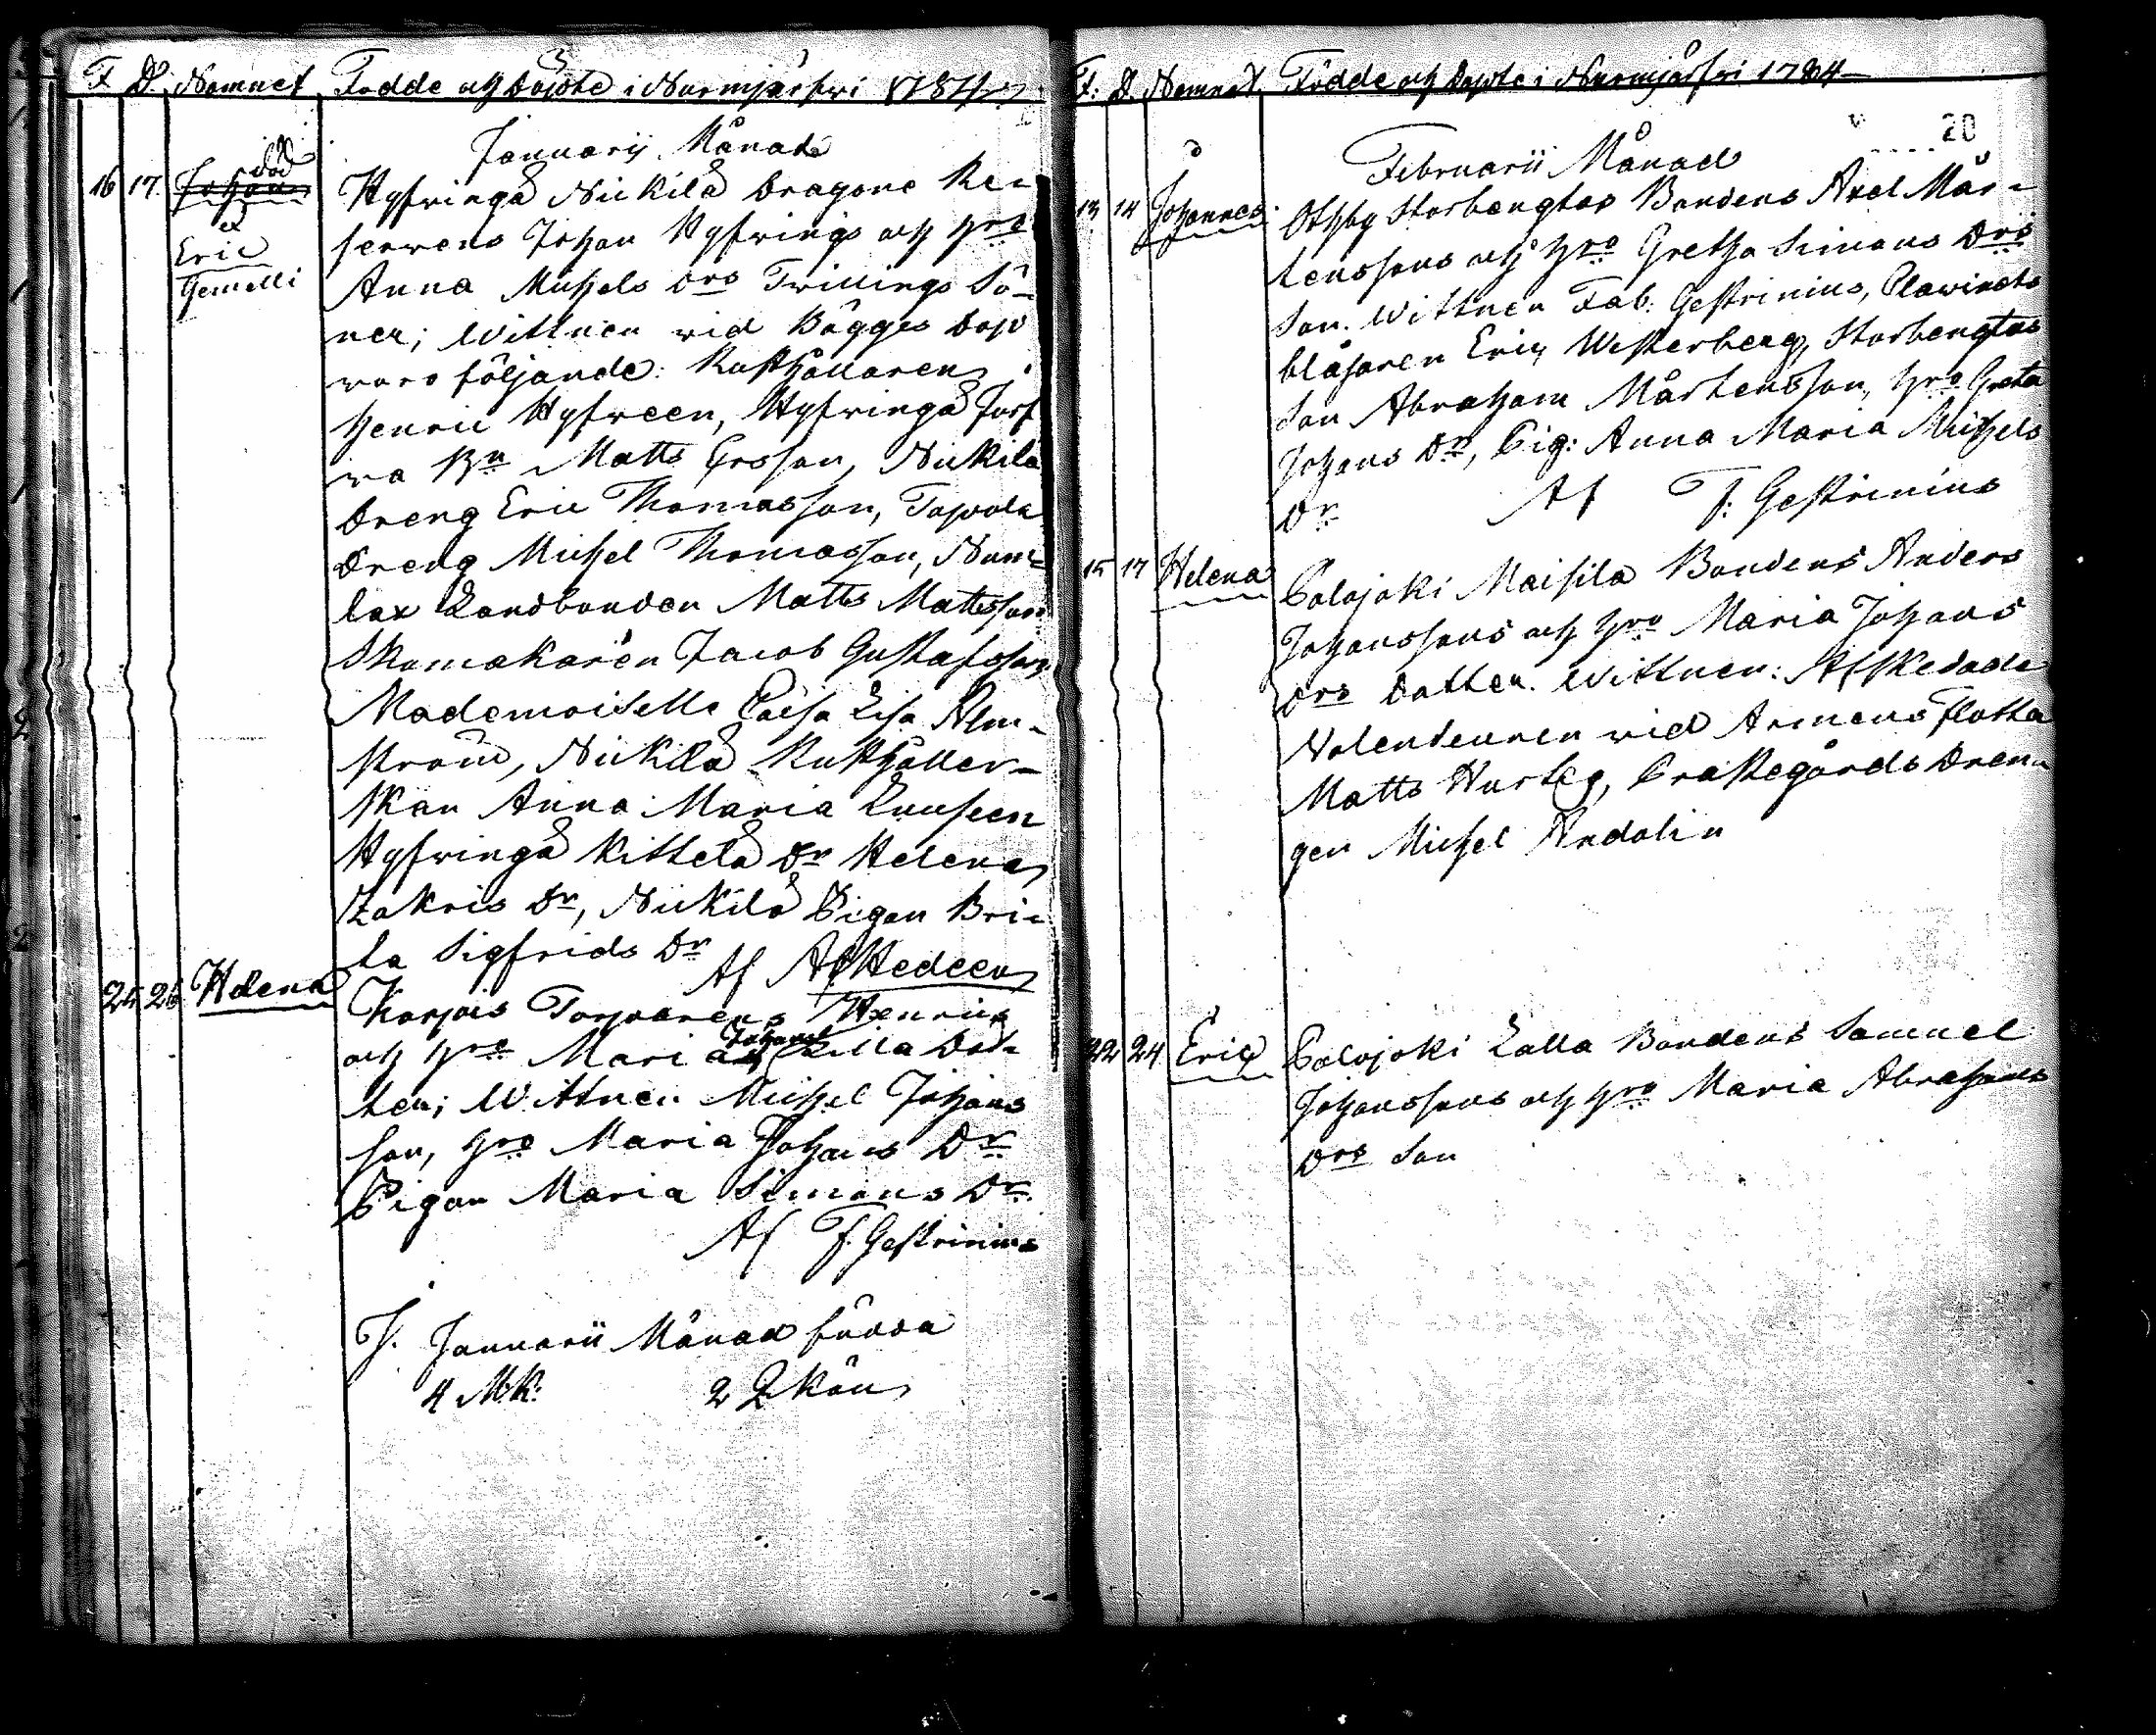 F D: Namnet Födde och Döpte i Nurmijärfwi 1784
Januarij Månad
16 17. Johan död Hyfvingå Nickilä Dragone Re-
et serwens Johan Hyfvings och hro
Eric
Gemelli Anna Michels drs Twillings Sö-
ner; Wittnen wid Bägges Dop
woro följande: Rusthållaren
Henric Hyfveen, Hyfvingå
wa Bn Matts Ersson, Nickilä
Dreng Eric Thomasson,
Dreng Michel Thomasson, Num-
lax Landbonden Matts Mattsson
Skomakaren Jacob Gustafsson,
Mademoiselle Caisa Lisa Alm-
ström, Nickilä Rusthåller-
skan Anna Maria
Hyfvingå Kittelä Dr Helena
Zakris Dr, Nickilä Pigan Bri-
ta Sigfrids Dr Af Hedeen
25 26 Helena Karjois Torparens Henrics
och hro Maria Johans Dot-
ter; Wittnen Michel Johans
son, hro Maria Johans Dr
Pigan Maria Simons Dr.
Af F. Gestrinius
Januarii Månad födda
4 M.K: 2 Q Kön
F: D. Namnet Födde och Döpte i Nurmijärfwi 1784
20
Februarii Månad
13 14 Johannes Othby Storbengtas Bondens Axel Mår-
tenssons och hro Gretha Simons Drs
Son. Wittnen Fab: Gestrinius, Clarinets
blåsaren Eric Westerberg, Storbengtas
Son Abraham Mårtensson, hro Greta
Johans Dr, Pig: Anna Maria Michels
Dr Af F: Gestrinius
15 17 Helena Palojoki Maisila Bondens Anders
Johanssons och hro Maria Johans
drs Dotter. Wittnen: Afskedade
Volenteuren wid Armens Flotta
Matts Hurtig, Prästegårds Dren-
gen Michel Andolin
22 24 Eric Palojoki Lalla Bondens Samuel
Johanssons och hro Maria Abrahams
Drs Son